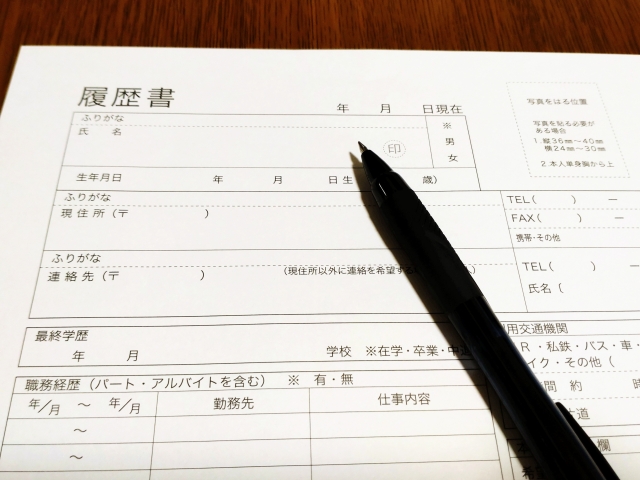 履歴書
年　月　日現在
写真をはる位置
写真を貼る必要が
ある場合
1.縦36㎜～40㎜
横24㎜～30㎜
2.本人単身胸から上
ふりがな
氏　名
印
※
男
女
生年月日　年　月　日生　歳）
ふりがな
現住所（〒　）
TEL(　)　ー
FAX(　)　ー
携帯・その他
ふりがな
連絡先（〒　）　（現住所以外に連絡を希望する
TEL(　)　ー
氏名（
最終学歴
年　月　学校　※在学・卒業・中
用交通機関
R・私鉄・バス・車・
イク・その他（
間　約　時
職務経歴（パート・アルバイトを含む）　※　有・無
年／月　～　年／月　勤務先　仕事内容
～
～
道
欄